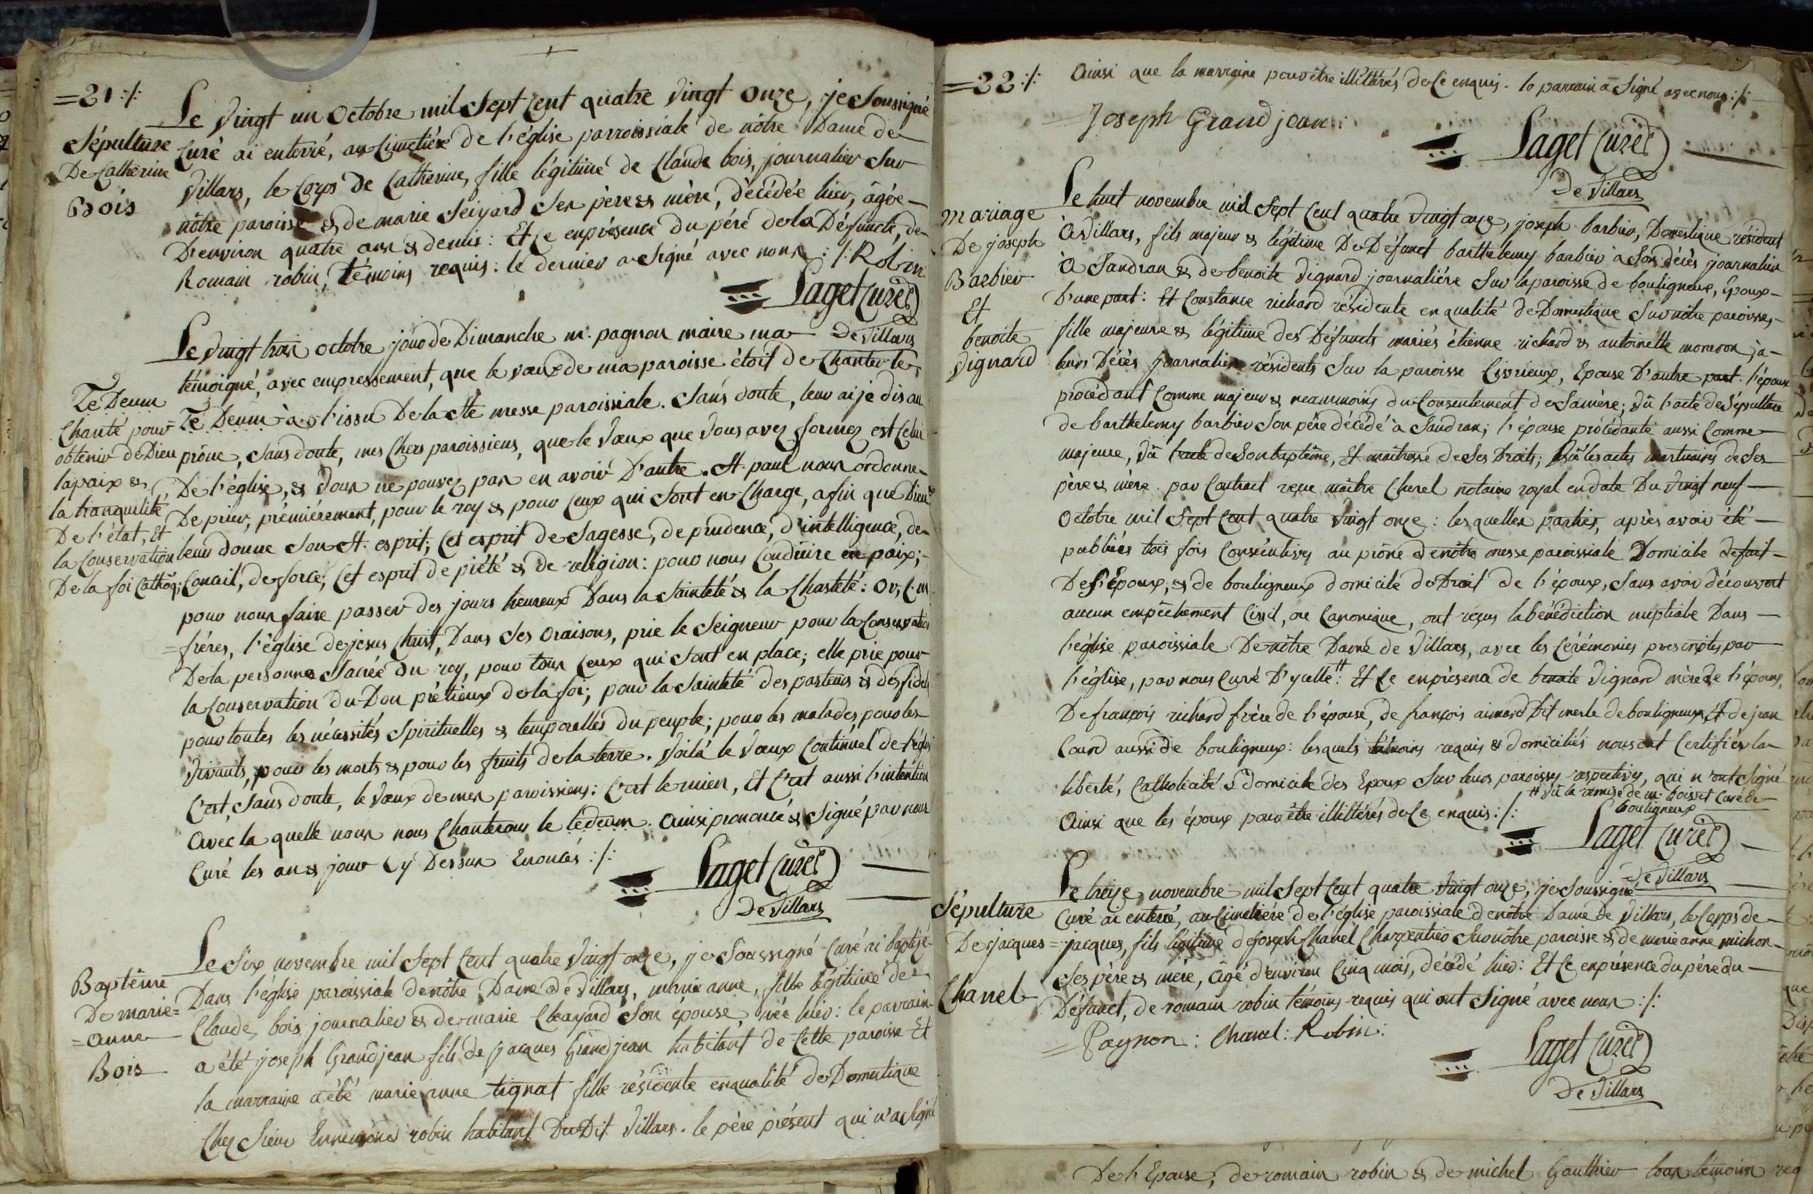 =21:/:
Le vingt un octobre mil Sept Cent quatre vingt onze, je Soussigné
Sépulture
De Catherine
Bois
Curé ai enterré, au Cimetiére de l'église parroissiale de nôtre Dame de
Villars, le Corps de Catherine, fille légitime de Claude bois, journalier Sur
nôtre paroisse & de marie Seiyard Ses père & mère, décédée hier, âgée
D'environ quatre ans & demis: Et Ce enprésence du père de la Défuncte, de
Romain robin, témoins requis: le dernier a Signé avec nous :/: Robin
Laget Curé
De Villars
Le vingt trois octobre jour de Dimanche mr. pagnon maire ma
témoigné, avec empressement, que le vœux de ma paroisse étoit de Chanter le
Te Deum
Chanté pour
obtenir de Dieu
la paix &
la tranquilité
De l'état, Et
la Conservation
De la foi Catholiq:
Te Deum à l'issu De la Ste messe paroissiale. Sans doute, leur ai je dis au
prône, Sans doute, mes Chers paroissiens, que le vœux que vous avez formez est Celui
De l'église, & vous ne pouvez pas en avoir D'autre. St. paul nous ordonne
De prier, prémiérement, pour le roy & pour Ceux qui Sont en Charge, afin que Dieu
leur donne Son St. esprit; Cet esprit de Sagesse, de prudence, d'intelligence, de
Conseil, de force; Cet esprit de piété & de religion: pour nous Conduire en paix;
pour nous faire passer des jours heureux Dans la Sainteté & la Chasteté: Or, mes
frères, l'église de jesus Christ, Dans Ses oraisons, prie le Seigneur pour la Conservation
De la personne Sacrée du roy, pour tous Ceux qui Sont en place; elle prie pour
la Conservation du Don prétieux de la foi; pour la Sainteté des pasteurs & des fidels
pour toutes les nécessités Spirituelles & temporelles du peuple; pour les malades pour les
vivants, pour les morts & pour les fruits de la terre. Voilà le vœux Continuel de l'église
C'est, Sans doute, le vœux de mes paroissiens: C'est le mien, Et C'est aussi l'intention
avec la quelle nous nous Chanterons le tedeum. ainsi prononcé & Signé par nous
Curé les an & jour Cy Dessus Enoncés :/:
Laget Curé
De Villars
Le Six novembre mil Sept Cent quatre vingt onze, je Soussigné Curé ai baptisé
Baptême
De marie=
=anne
Bois
Dans l'église paroissiale de nôtre Dame de Villars, marie anne, fille légitime de
Claude bois journalier & de marie Son épouse, née hier: le parrain
a été joseph Grandjean fils de jacques Grandjean habitant de Cette paroisse Et
la marraine a été marie anne tignat fille résidente enqualité de Domestique
Chez Sieur robin habitant DuDit Villars. le père présent qui n'a Signé
=22:/:
Ainsi que la marraine pour être illitérés de Ce enquis. le parrain a Signé avec nous :/:
Joseph Grandjean:
Laget Curé
De Villars
Le huit novembre mil Sept Cent quatre vingt onze, joseph barbier, Domestique résident
mariage
De joseph
Barbier
Et
benoite
Vignard
à Villars, fils majeur & légitime De Défunct barthelemy barbier à Son décès journalier
à Sandran & de benoite vignard journaliére Sur la paroisse de bouligneux, époux
D'une part: Et Constance richard résidente en qualité de Domestique Sur nôtre paroisse,
fille majeure & légitime des Défuncts mariés étienne richard & antoinette à
leurs Décès journaliers résidents Sur la paroisse Civrieux, Epouse D'autre part: l'époux
procedant Comme majeur & neanmoins du Consentement de Sa mère; vû l'acte de Sépulture
de barthelemy barbier Son père décédé à Sandran; l'épouse procédante aussi Comme
majeure, vû l'acte de Son baptême, Et maîtresse de Ses Droits; vû les actes mortuaires de Ses
père & mère. par Contract reçue maître Cherel notaire royal endate Du vingt neuf
Octobre mil Sept Cent quatre vingt onze: lesquelles parties, après avoir été
publiées trois fois Consécutives au prône de nôtre messe paroissiale Domicile defait
De l'époux, & de bouligneux domicile de Droit de l'époux, Sans avoir découvert
aucun empêchement Civil, ou Canonique, ont reçus la bénédiction nuptiale Dans
l'église paroissiale De nôtre Dame de Villars, avec les Cérémonies prescriptes par
l'église, par nous Curé D'ycelle # Et Ce enprésence de benoite vignard mère de l'époux,
De françois richard frère de l'épouse, de françois aimard dit merle de bouligneux, & de jean
Cour aussi de bouligneux: lesquels témoins requis & domiciliés nous ont Certifiés la
liberté, Catholicité & domicile des Epoux Sur leurs paroisses respectives, qui n'ont Signé
# vû la remise de mr. boisset Curé de
bouligneux
Ainsi que les époux pour être illitérés de Ce enquis :/:
Laget Curé
De Villars
Le treize novembre mil Sept Cent quatre vingt onze, je Soussigné
Sépulture
De jacques=
Chanel
Curé ai enterré, au Cimetière de l'église paroissiale de nôtre Dame de Villars, le Corps de
=jacques, fils légitime de joseph Chanel Charpentier Sur nôtre paroisse & de marie anne michon
Ses père & mère, âgé d'environ Cinq mois, décédé hier: Et Ce enprésence du père du
Défunct, de romain robin témoins requis qui ont Signé avec nous :/:
=Pagnon: Chanel: Robin:
Laget Curé
De Villars
De l'Epouse; de romain robin & de michel Gauthier tous témoins req